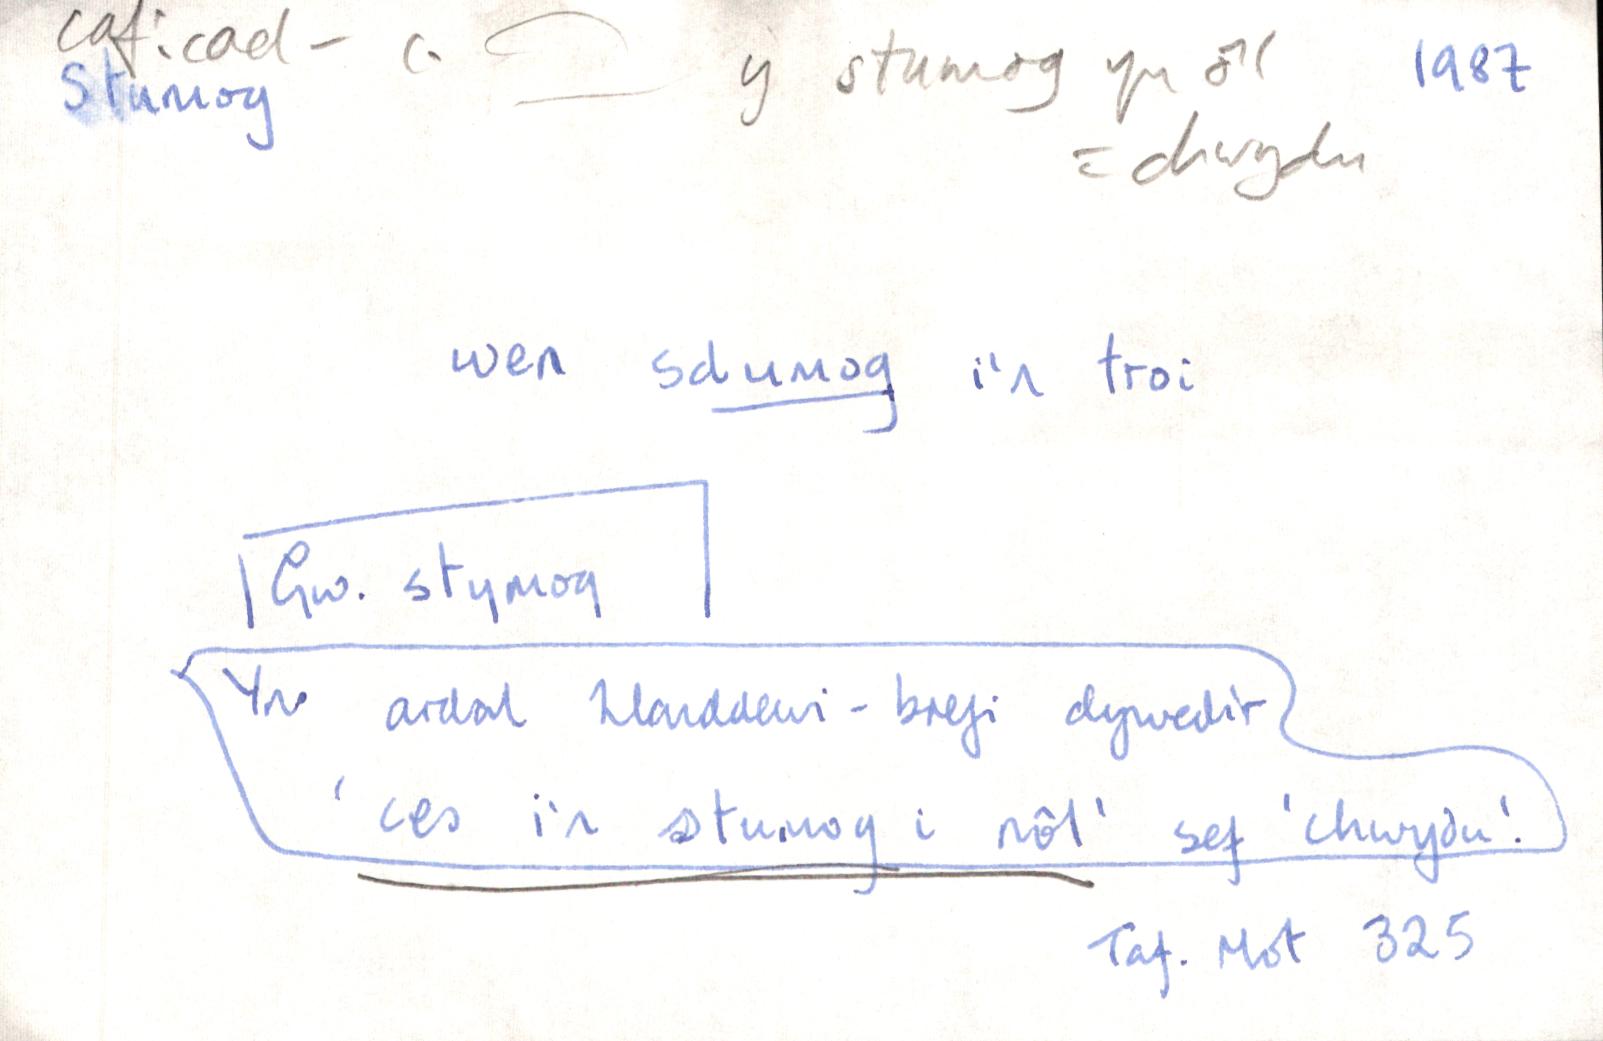 caf:cad - c. y stumog yn ôl 1987
Stumog
= chwydu
wen sdumog i'n troi
Gw. stymog
Yn ardal Llanddewi-brefi dywedir
'ces i'n stumog i nôl' sef 'chwydu'.
Taf. Mot 325